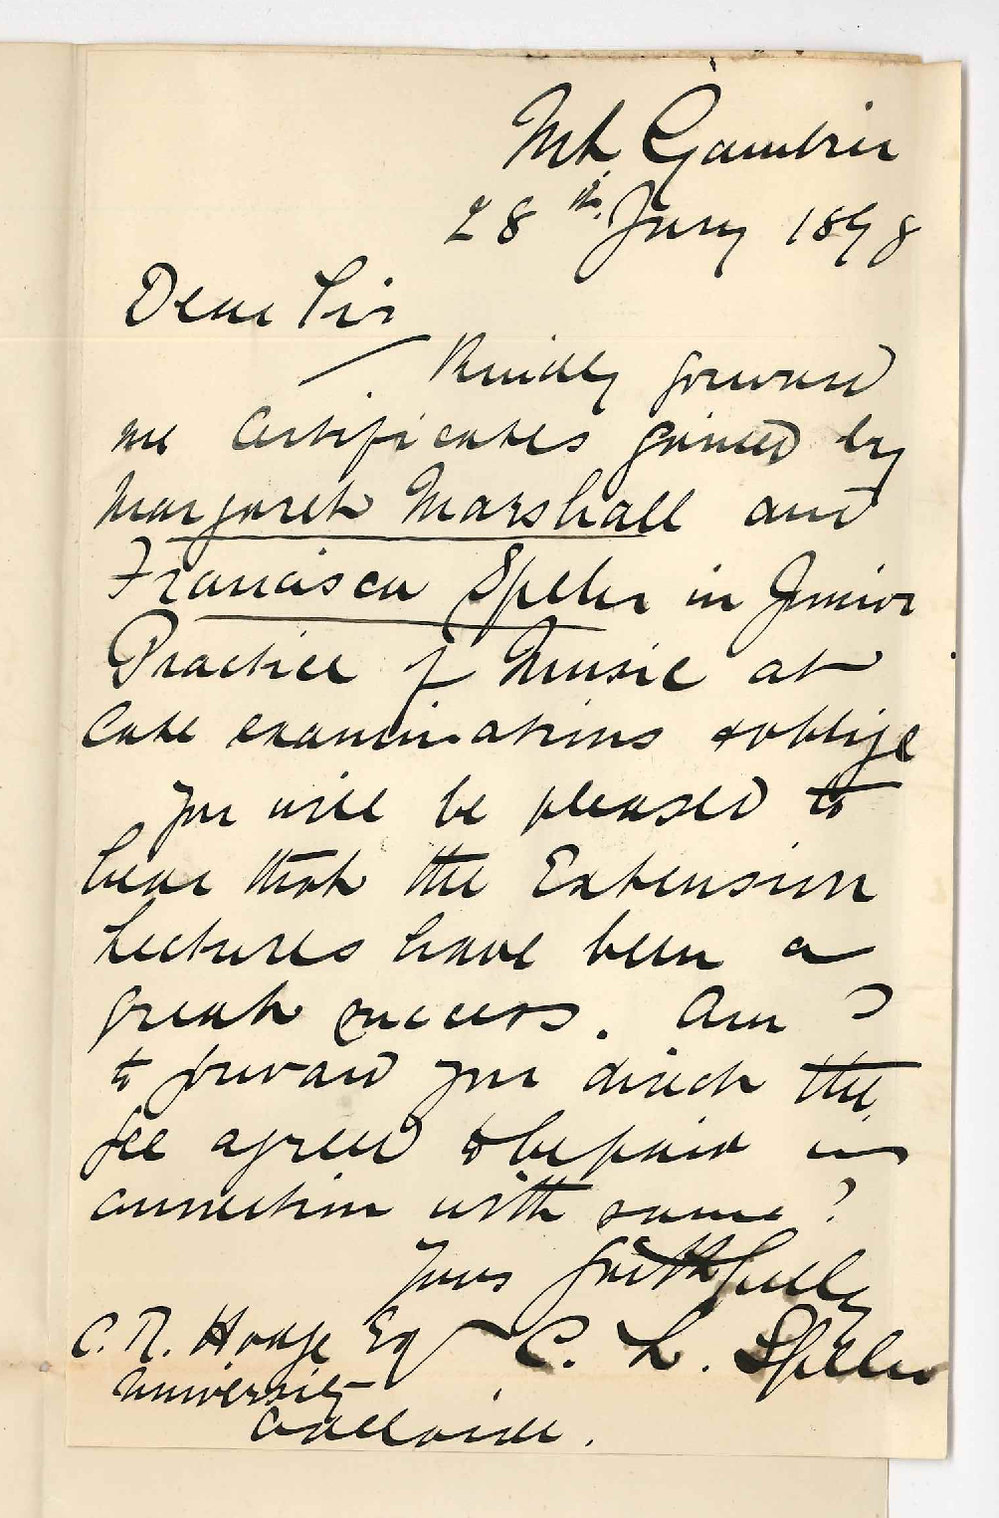 Mt Gambier
28th July 1898
Dear Sir
Kindly forward
me Certificates gained by
Margaret Marshall and
Francisca Speler in Junior
Practice of Music at
late examinations & oblige
You will be pleased to
hear that the Extension
Lectures have been a
great success. Am I
to forward you direct the
fee agreed to be paid in
connection with same?
Yours faithfully
C. L. Speler
C. R. Hodge Esq
University
Adelaide.